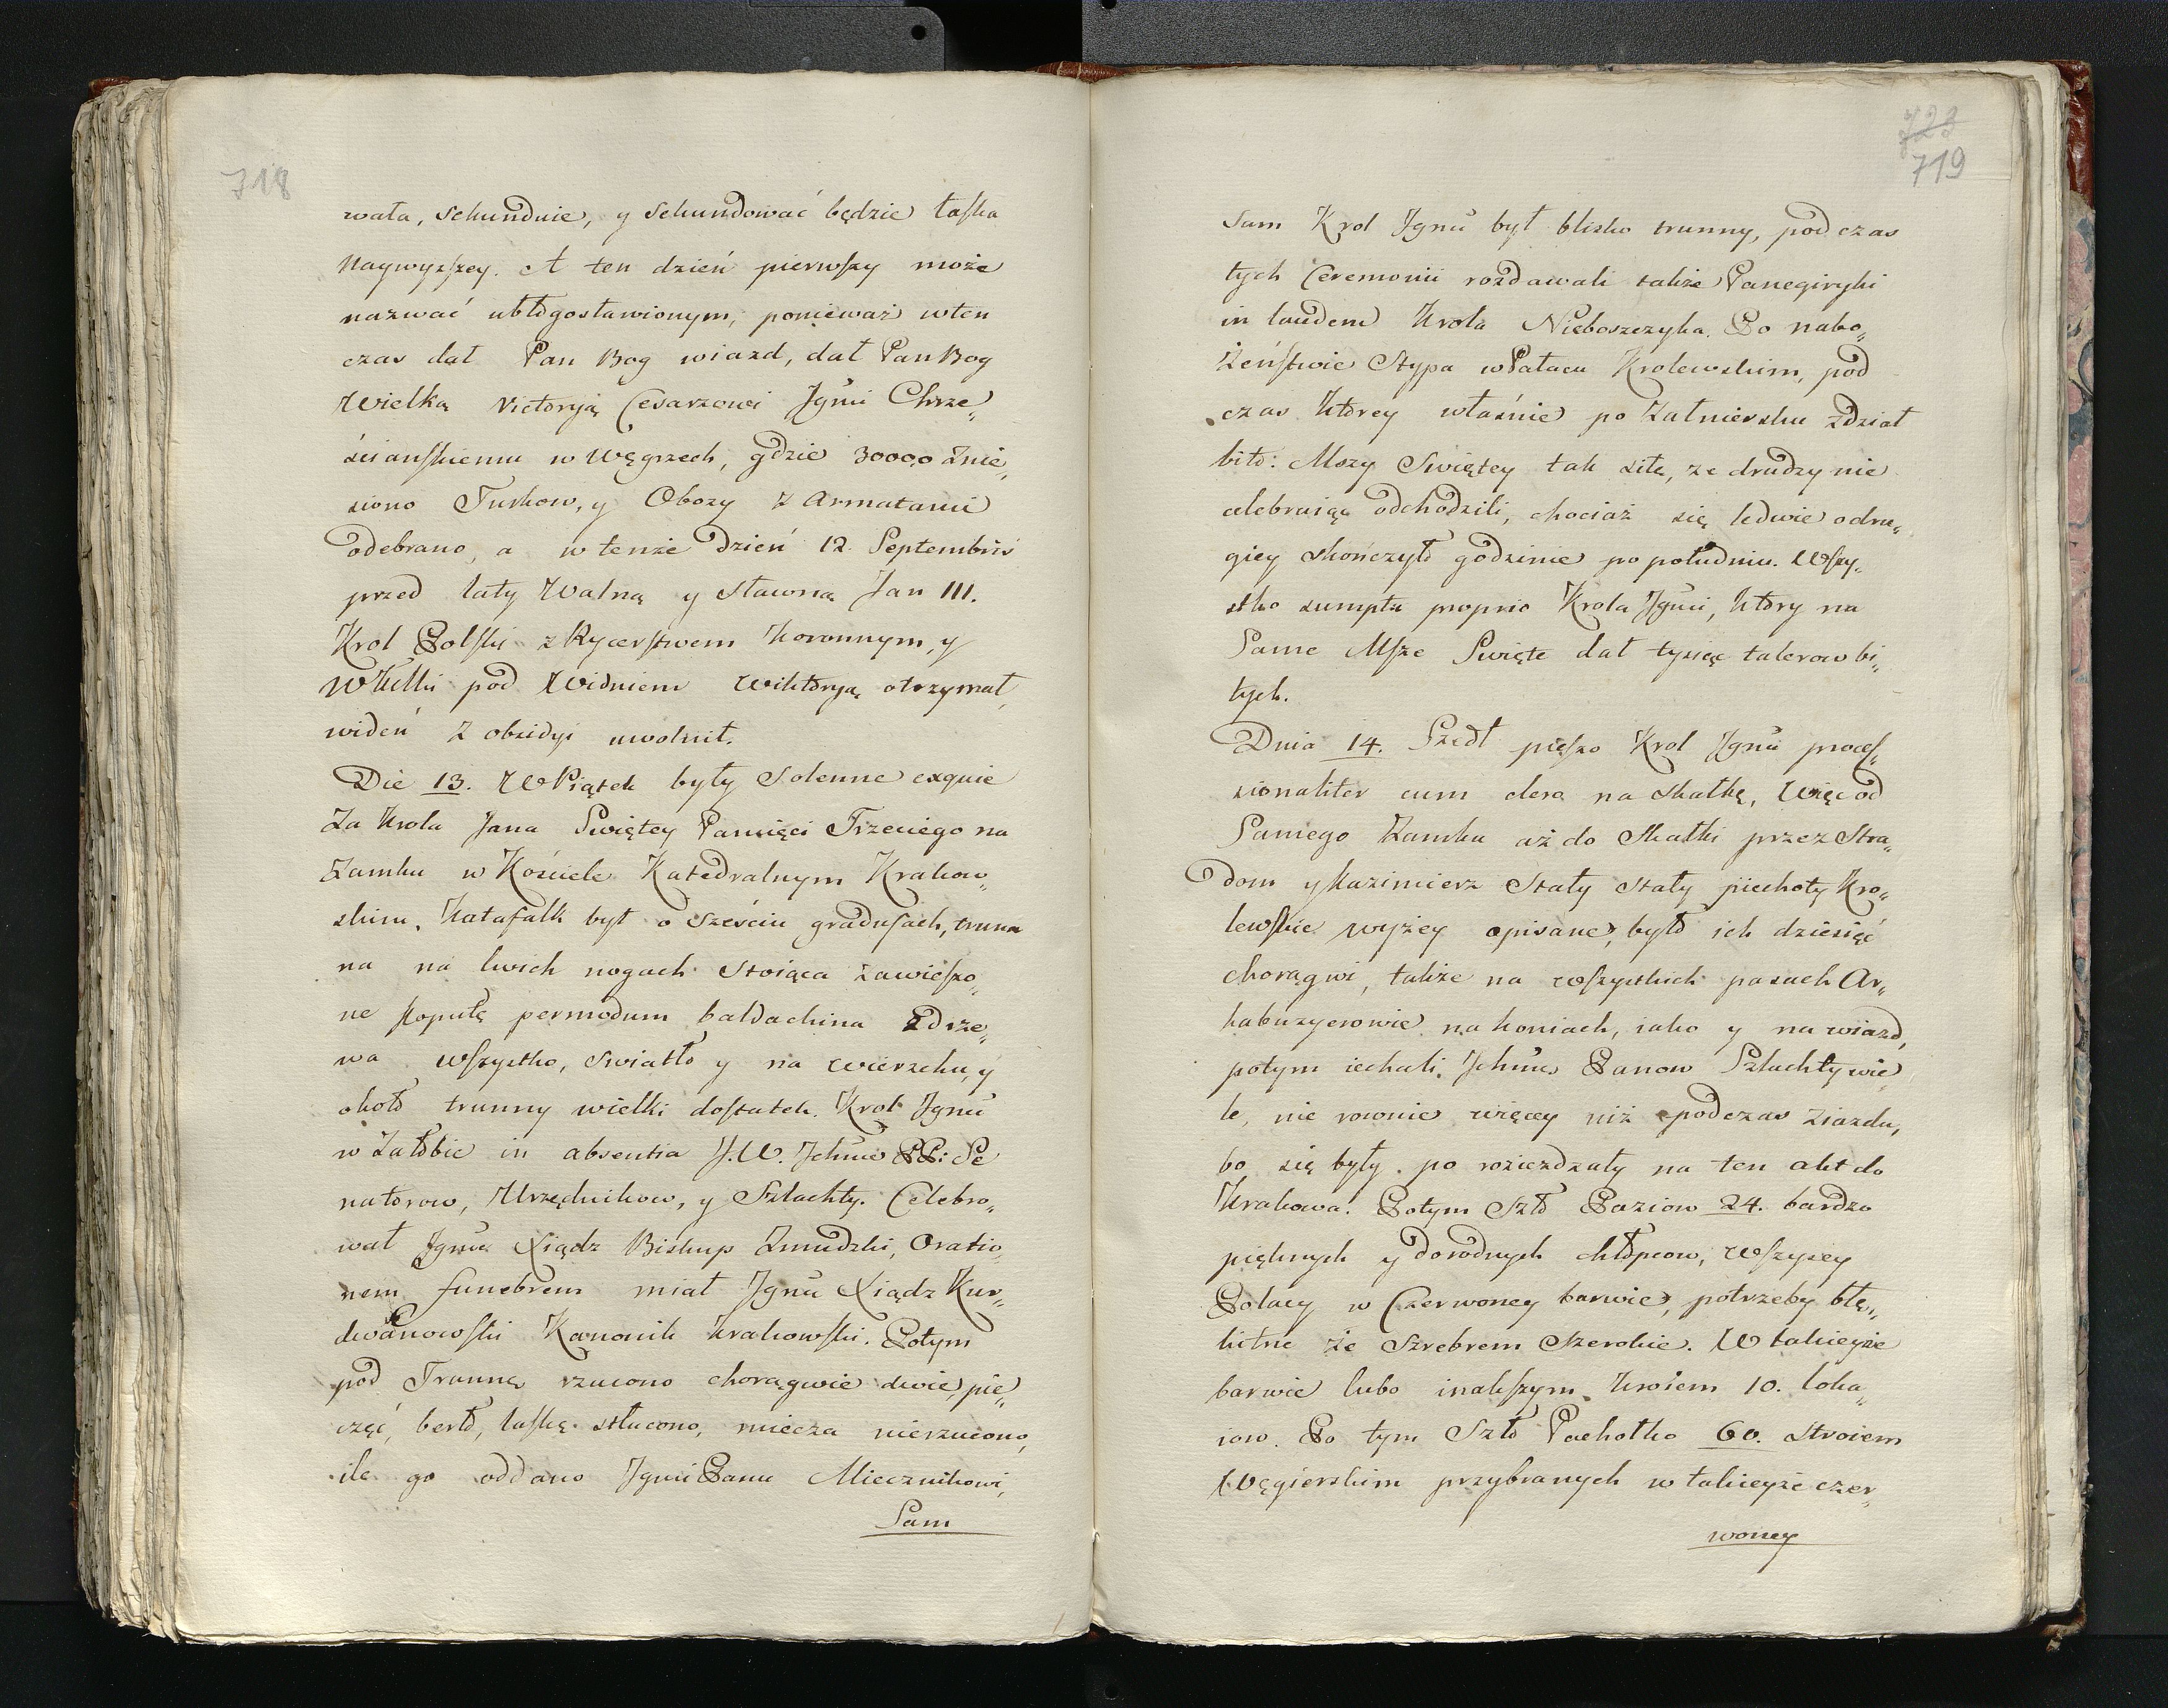 718
wała, sekunduie, y sekundować będzie łaska
Naywyzszey. A ten dzień pierwszy może
nazwać ubłogosławionym, ponieważ wten
czas dał Pan Bog wiazd, dał Pan Bog
Wielką Victoryją Cesarzowi Jgmci Chrze„
ścianskiemu w Węgrzech, gdzie 30000 Znie„
siono Turkow, y Obozy z Armatami
odebrano, a w tenże Dzień 12. Septembris
przed laty Walną y sławną Jan III.
Krol Polski z Rycerstwem Koronnym, y
W Xa Litt: pod Widniem Wiktoryją otrzymał,
wideń z obsidyi uwolnił.
Die 13. W Piątek były Solenne exquie
Za Krola Jana Swiętey Pamięci Trzeciego na
Zamku w Kościele Katedralnym Krakow„
skim. Katafalk był o sześciu gradusach, trunn
na na lwich nogach stoiąca zawieszo„
ne kopułę permodum baldachina zdrze„
wa wszystko, swiatło y na wierzchu, y
około trunny wielki dostatek. Krol Jgmć
w Załobie in absentia J. W. Jchmc PP: Se
natorow, Urzędnikow, y Szlachty. Celebro„
wał Jgmc Xiądz Biskup Zmudzki, Oratio„
nem funebrem miał Jgmć Xiądz Kur„
dwanowski Kanonik krakowski. Potym
pod Trunną rzucono chorągwie dwie, pie„
częć, berło, laskę stłucono, miecza nierzucono,
ile go oddano Jgmci Panu Miecznikowi,
Sam
723
719
Sam Krol Jgmć był blisko trunny, pod czas
tych Ceremonii rozdawali także Panegiryki
in laudem Krola Nieboszczyka. Po nabo„
żeństwie Stypa w Pałacu Krolewskim, pod
czas ktorey właśnie po Żałniersku zdział
bito: Mszy Swiętey tak siłą, ze drudzy nie
celebruiąc odchodzili, chociaż się ledwie odru„
giey skończyło godzinie po południu. Wszy„
stko sumptu proprio Krola Jgmci, ktory na
Same Msze Swięte dał tysiąc talerow bi„
tych.
Dnia 14. Szedł pieszo Krol Jgmć proces„
sionaliter cum clero na skałkę, Więc od
Samego Zamku aż do Skałki przez Stra„
dom y Kazimierz Stały stały piechoty Kro„
lewskie wyżey opisane, było ich dziesięć
chorągwi, także na wszystkich pasach Ar„
kabuzyerowie na koniach, iako y na wiazd,
potym iechali Jchmc Panow Szlachty wie„
le, nie rownie więcey niż podczas Ziazdu,
bo się były po roziezdzały na ten akt do
Krakowa. Potym Szło Paziow 24. bardzo
pięknych y dorodnych chłopcow, wszyscy
Polacy w Czerwoney barwie, potrzeby błę„
kitne ze Srebrem szerokie. W takieyże
barwie lubo inakszym kroiem 10. loka„
iow. Po tym Szło Pachołko 60. stroiem
Węgierskim przybranych w takieyże czer„
woney